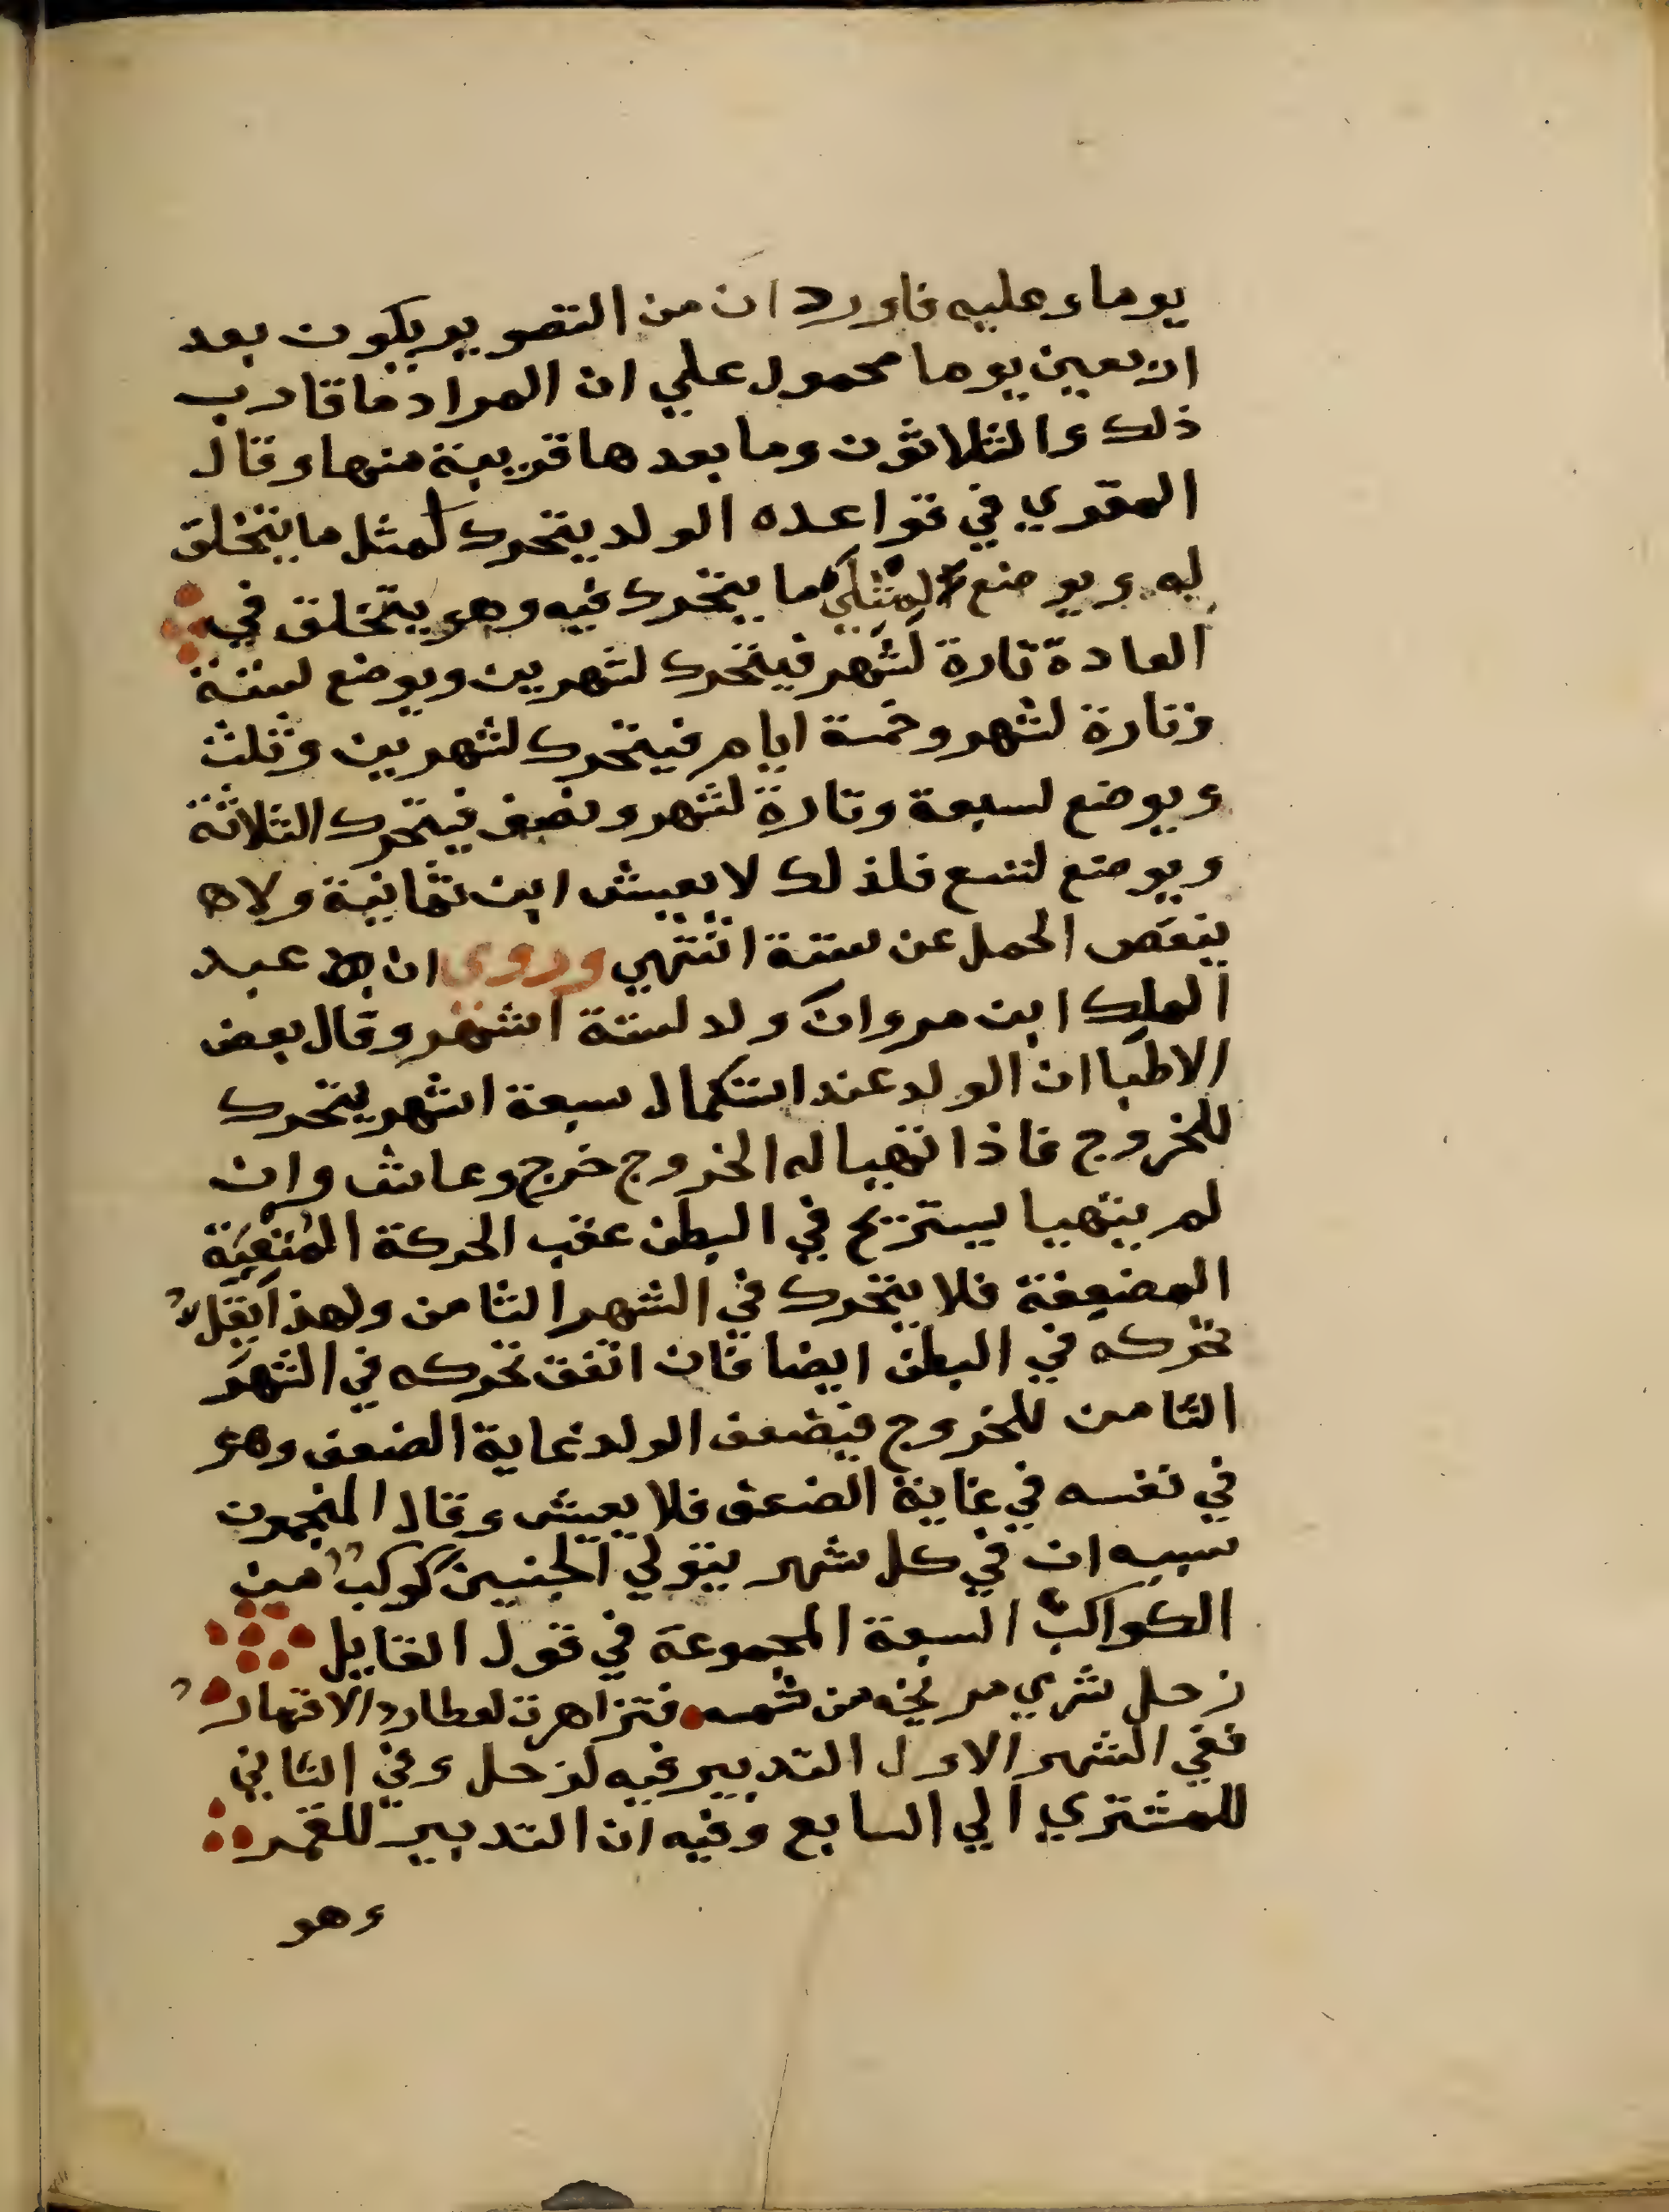 يوما وعليه فاورد ان من التصوير يكون بعد
اربعين يوما محمول علي ان المراد ما قارب
ذلك والثلاثون وما بعدها قريبة منها وقال
المقري في قواعده الولد يتحرك لمثل ما يتخلق
له ويوضع لمثلي ما يتحرك فيه وهو يتخلق في
العادة تارة لشهر فيتحرك لشهرين ويوضع لستة
وتارة لشهر وخمسة ايام فيتحرك لشهرين وثلث
ويوضع لسبعة وتارة لشهر ونصف فيتحرك لثلاثة
ويوضع لتسع فلذلك لا يعيش ابن ثمانية ولا
ينقص الحمل عن ستة انتهي وروي ان عبد
الملك ابن مروان ولد لستة اشهر وقال بعض
الاطبا ان الولد عند استكمال سبعة اشهر يتحرك
للخروج فاذا تهيا له الخروج خرج وعاش وان
لم يتهيا يستريح في البطن عقب الحركة المتعبة
المضعفة فلا يتحرك في الشهر الثامن ولهذا يقل
تحركه في البطن ايضا فان اتفق تحركه في الشهر
الثامن للخروج فيضعف الولد غاية الضعف وهو
في نفسه في غاية الضعف فلا يعيش وقال المنجمون
سببه ان في كل شهر يتولي الجنين كوكب من
الكواكب السبعة المجموعة في قول القايل
زحل شري مريخه من شمسه فتزاهرت لعطارد الاقمار
ففي الشهر الاول التدبير فيه لزحل وفي الثاني
للمشتري الي السابع وفيه ان التدبير للقمر
وهو